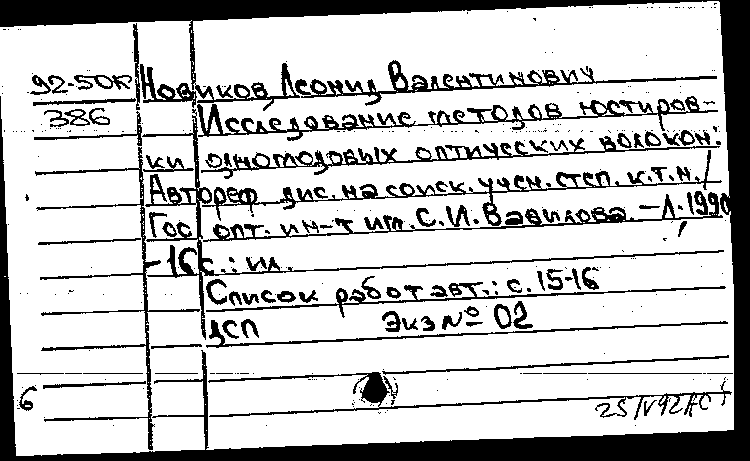 92-50к Новиков, Леонид Валентинович
386 Исследование методов юстиров-
ки одномодовых оптических волокон:
Автореф. дис. на соиск. учен. степ. к.т.н. /
Гос. опт. ин-т им. С.И. Вавилова. - Л. 1990
- 16 с.: ил.
Список работ авт.: с. 15-16
ДСП Экз № 02
6
25/IV92